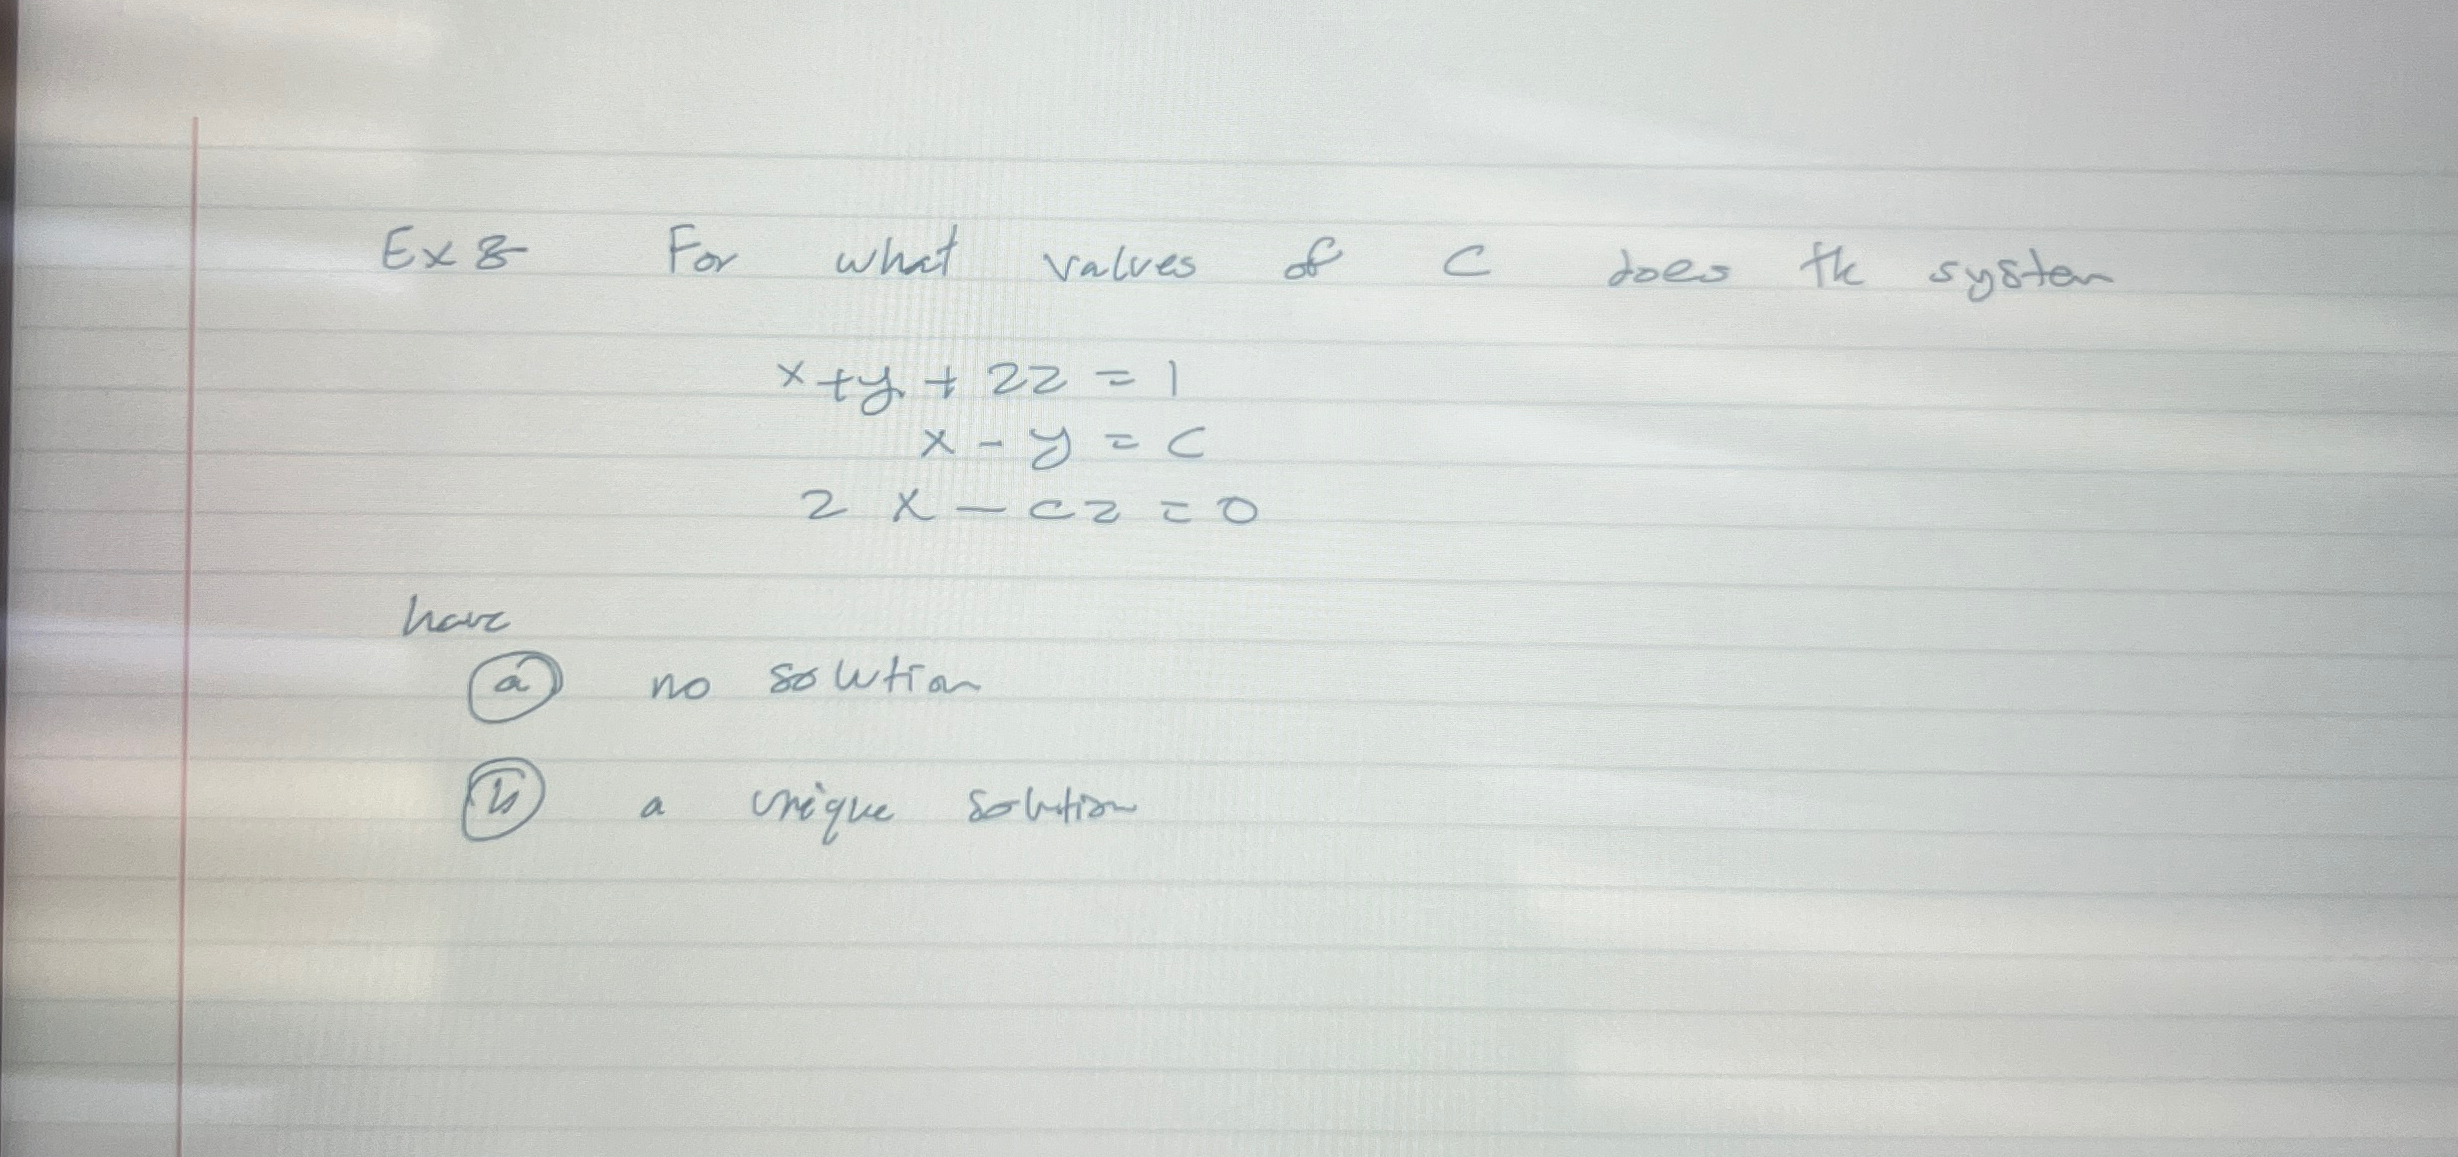 Ex 8 For what values of C does the system
x + y + 2z = 1
x - y = c
2x - cz = 0
have
(a) no solution
(b) a unique solution